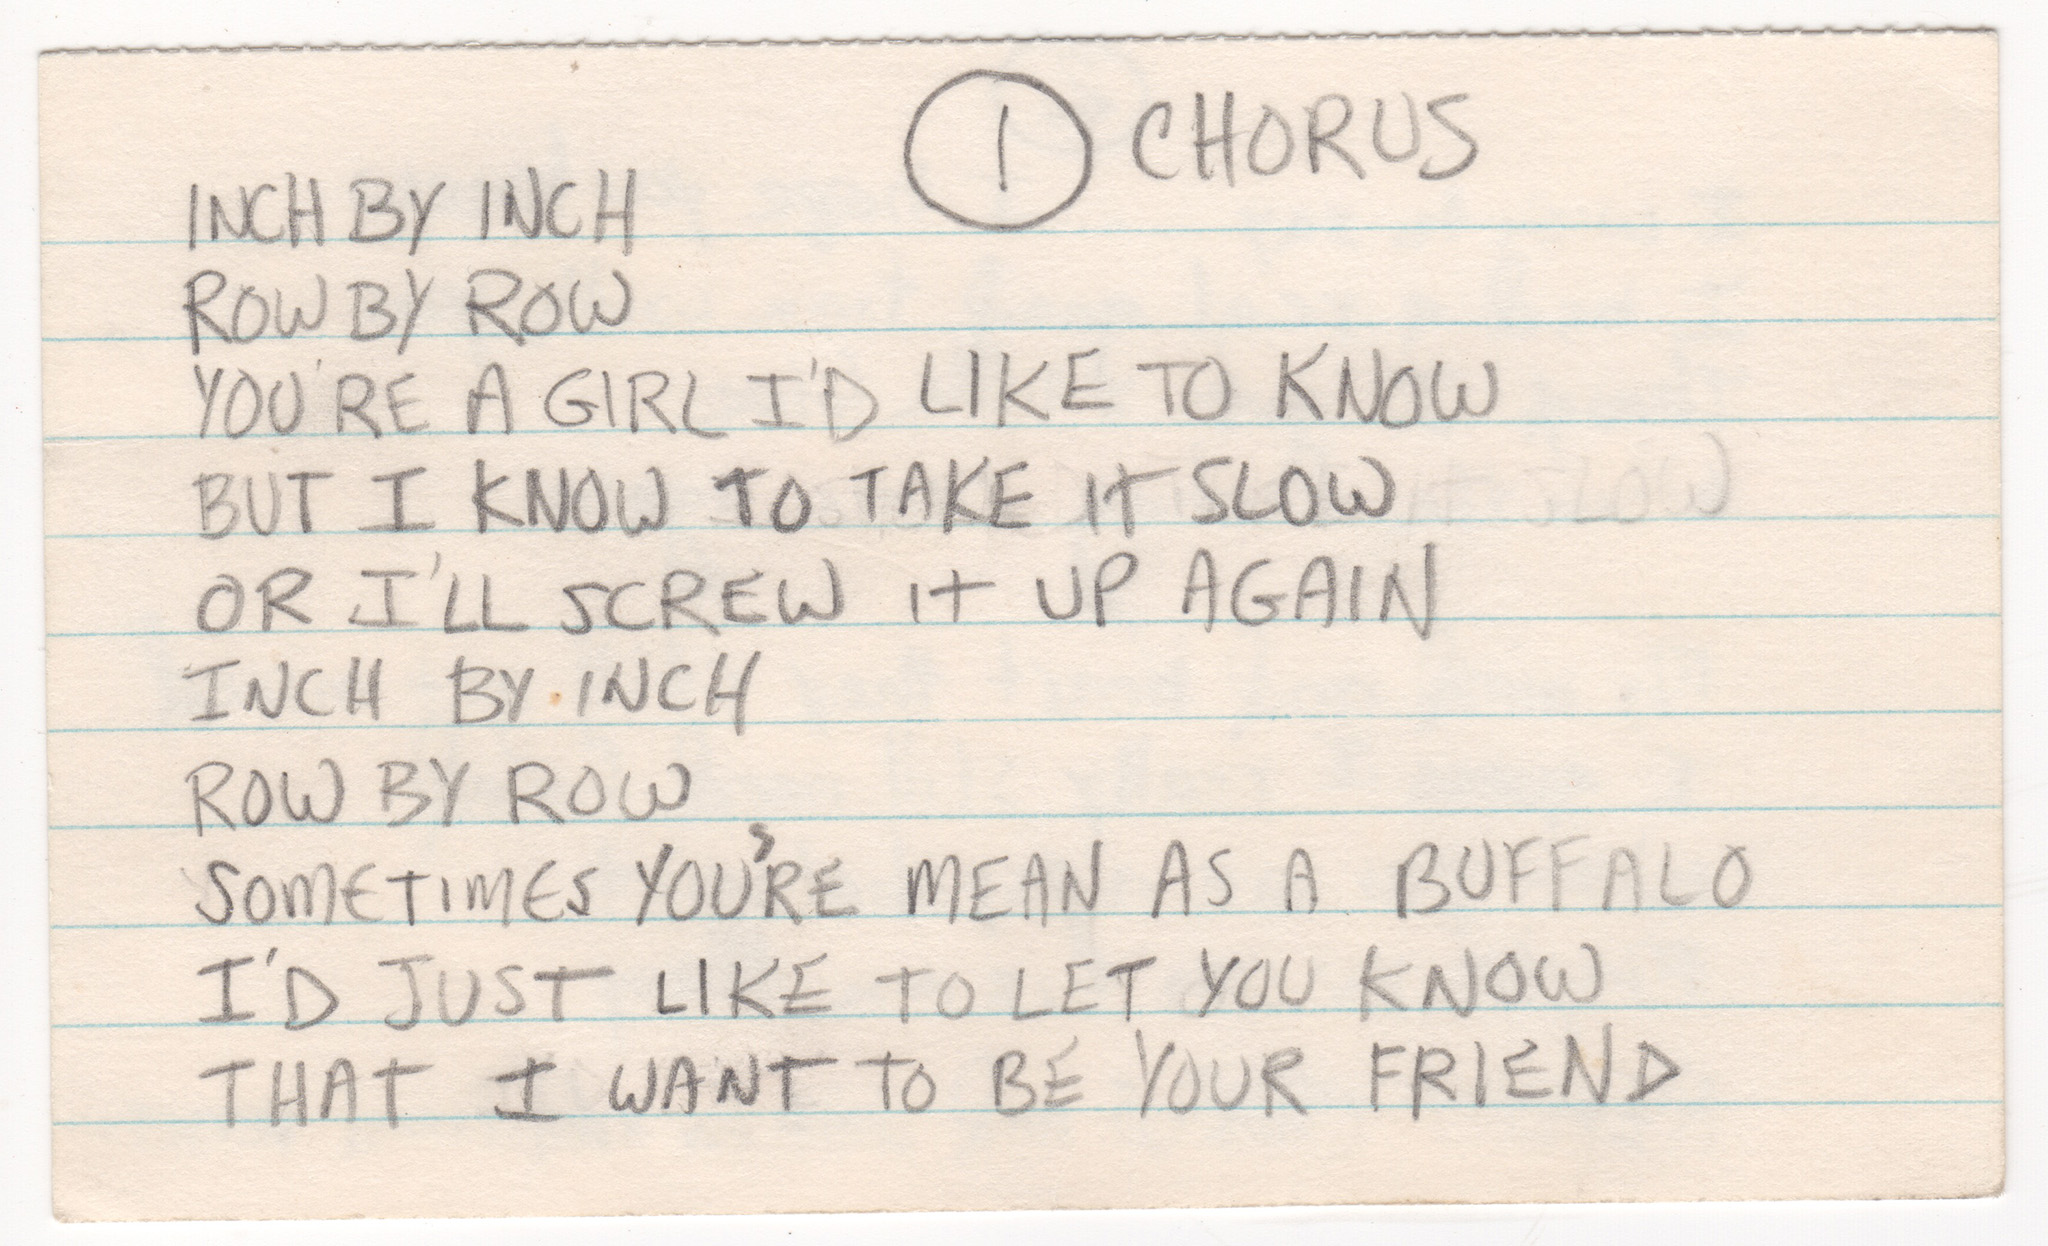 ① CHORUS
INCH BY INCH
ROW BY ROW
YOU'RE A GIRL I'D LIKE TO KNOW
BUT I KNOW TO TAKE IT SLOW
OR I'LL SCREW IT UP AGAIN
INCH BY INCH
ROW BY ROW
SOMETIMES YOU'RE MEAN AS A BUFFALO
I'D JUST LIKE TO LET YOU KNOW
THAT I WANT TO BE YOUR FRIEND